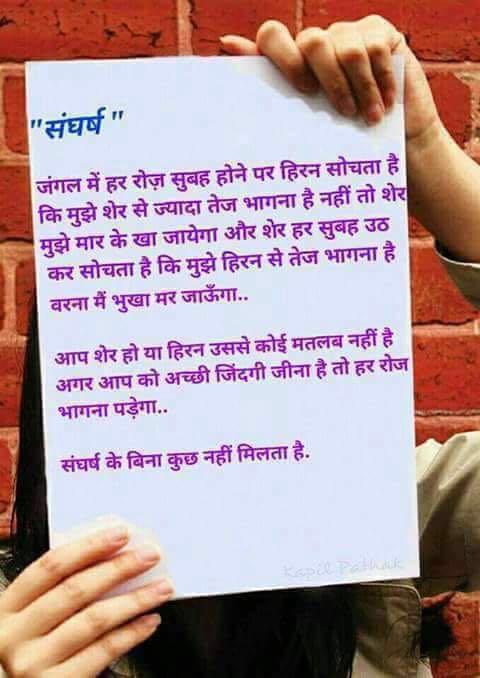 "संघर्ष "
जंगल में हर रोज़ सुबह होने पर हिरन सोचता है
कि मुझे शेर से ज्यादा तेज भागना है नहीं तो शेर
मुझे मार के खा जायेगा और शेर हर सुबह उठ
कर सोचता है कि मुझे हिरन से तेज भागना है
वरना मैं भुखा मर जाऊँगा..
आप शेर हो या हिरन उससे कोई मतलब नहीं है
अगर आप को अच्छी जिंदगी जीना है तो हर रोज
भागना पड़ेगा..
संघर्ष के बिना कुछ नहीं मिलता है.
Kapil Pathak